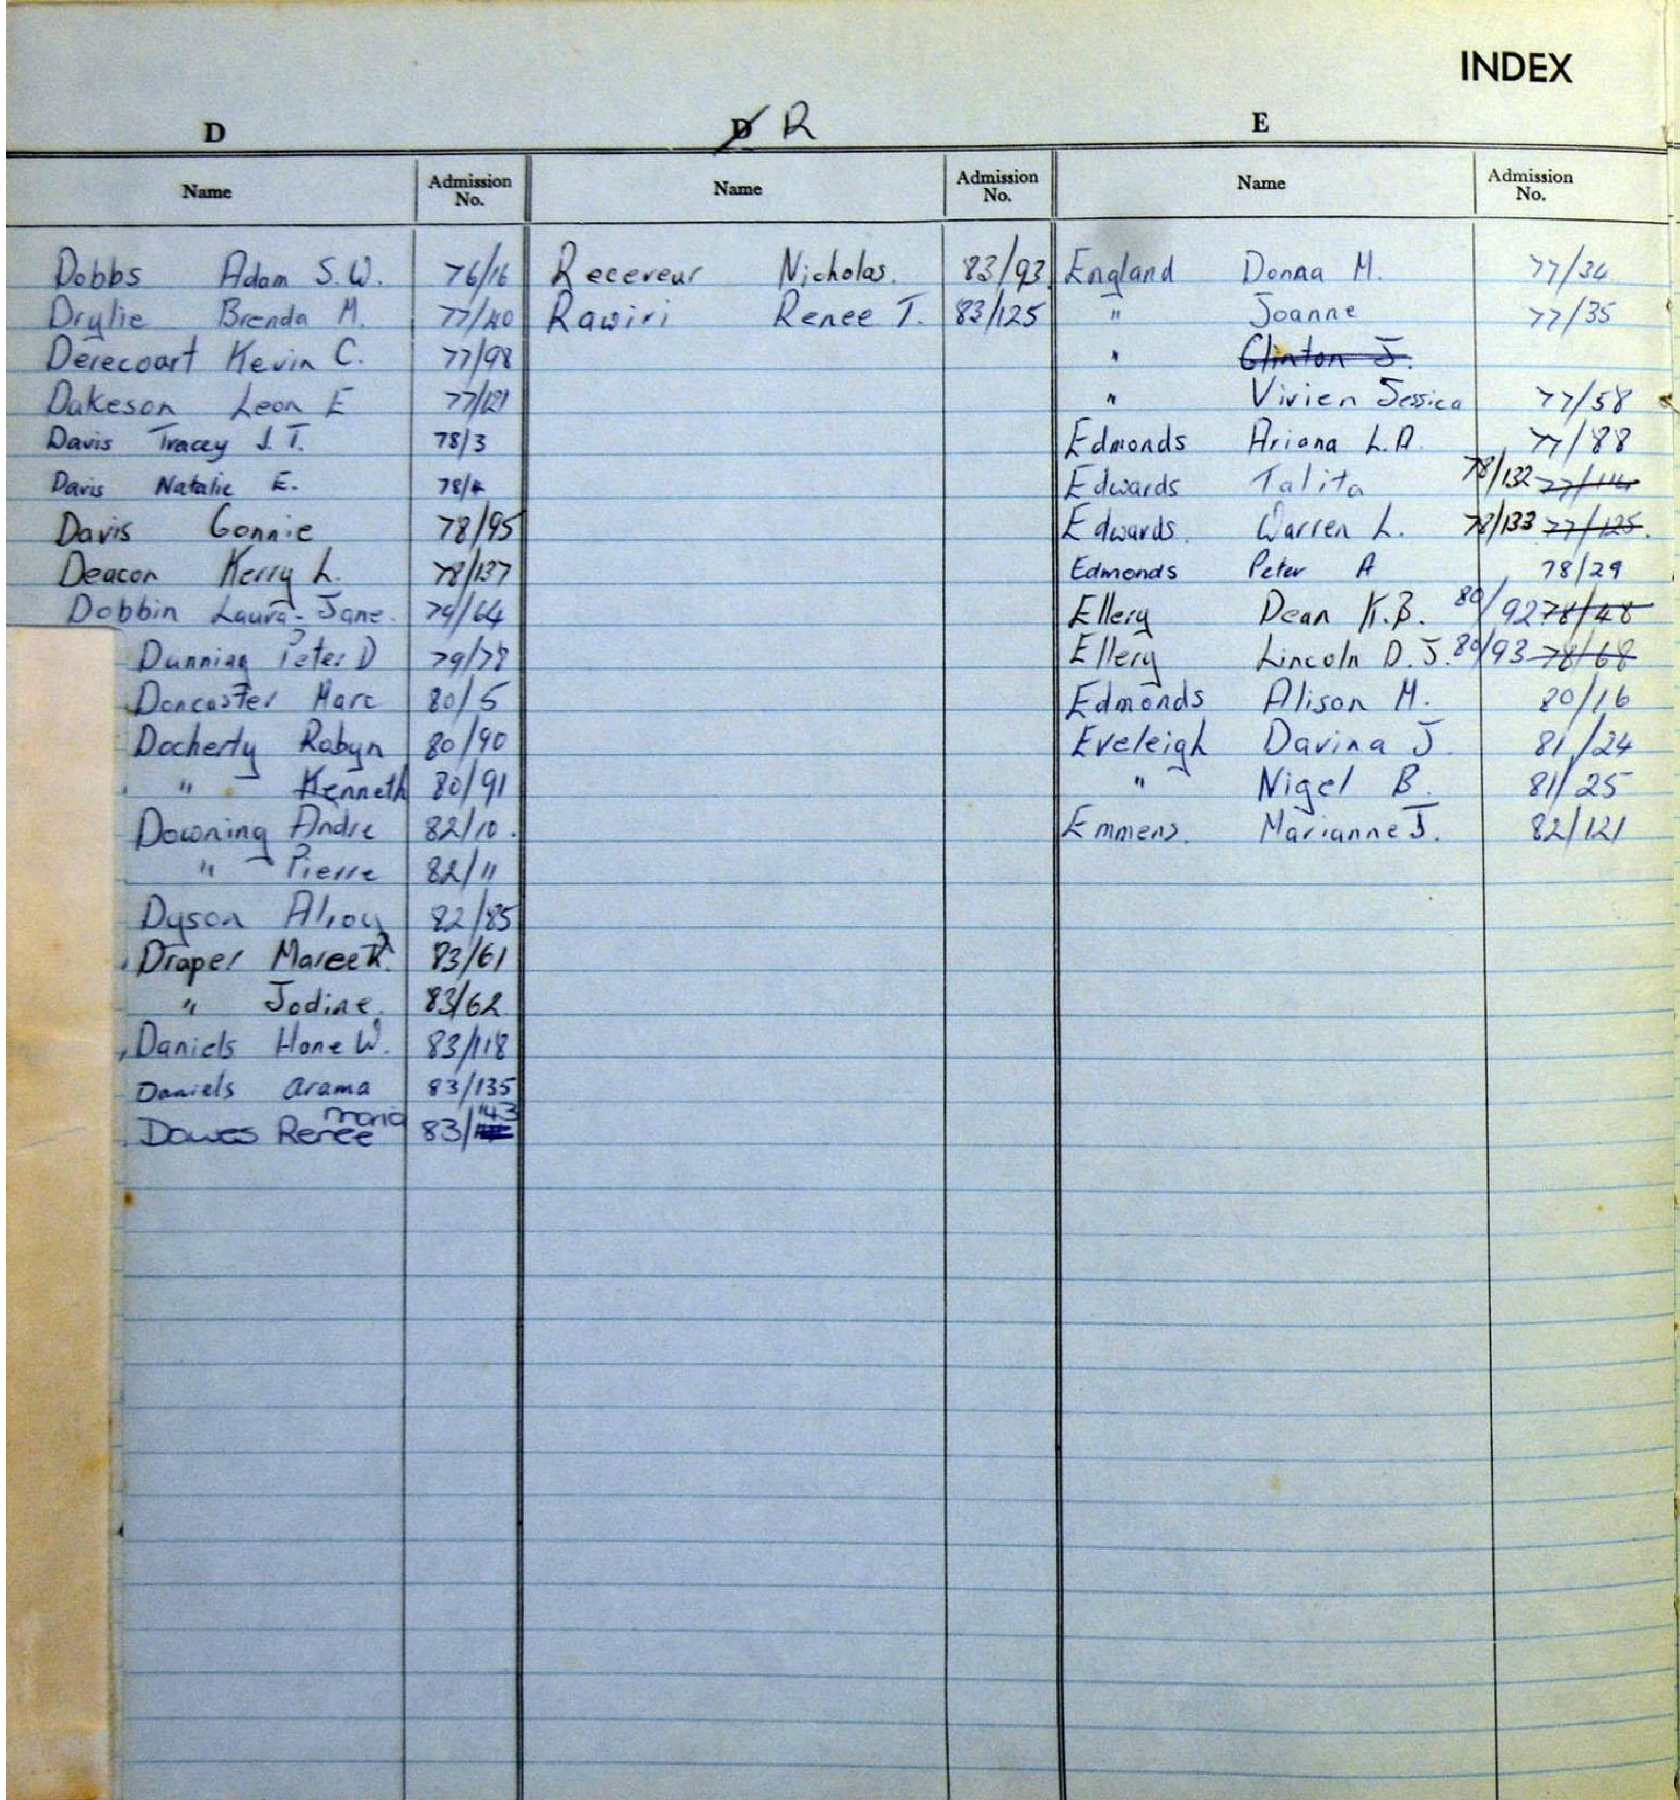 INDEX
D
D R
E
Name Admission No.
Name Admission No.
Name Admission No.
Dobbs Adam S.W. 76/16
Drylie Brenda M. 77/40
Derecourt Kevin C. 77/98
Dakeson Leon E 77/121
Davis Tracey J.T. 78/3
Davis Natalie E. 78/4
Davis Connie 78/95
Deacon Kerry L. 78/137
Dobbin Laura-Jane. 79/64
Dunning Peter D 79/78
Doncaster Marc 80/5
Docherty Robyn 80/90
" Kenneth 80/91
Downing Andre 82/10.
" Pierre 82/11
Dyson Alroy 82/85
Draper Maree R. 83/61
" Jodine. 83/62
Daniels Hone W. 83/118
Daniels Arama 83/135
Dawes Renee Maria 83/143
Receveur Nicholas. 83/93
Rawiri Renee T. 83/125
England Donna M. 77/34
" Joanne 77/35
" Clinton J.
" Vivien Jessica 77/58
Edmonds Ariana L.A. 77/88
Edwards Talita 78/132 77/114
Edwards. Warren L. 78/133 77/125.
Edmonds Peter A 78/29
Ellery Dean K.B. 80/92 78/48
Ellery Lincoln D.J. 80/93 78/68
Edmonds Alison M. 80/16
Eveleigh Davina J. 81/24
" Nigel B. 81/25
Emmens. Marianne J. 82/121